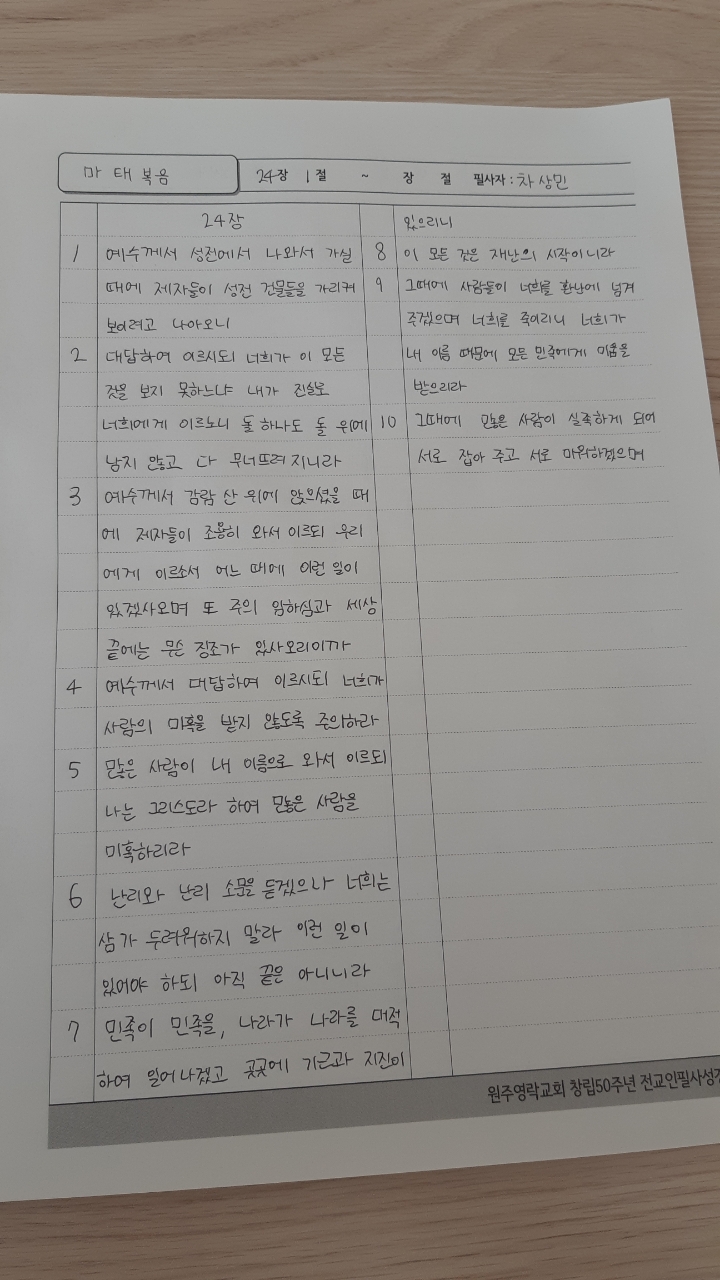 마태복음 24장 1절 ~ 장 절 필사자 : 차상민
24장
1 예수께서 성전에서 나와서 가실
때에 제자들이 성전 건물들을 가리켜
보이려고 나아오니
2 대답하여 이르시되 너희가 이 모든
것을 보지 못하느냐 내가 진실로
너희에게 이르노니 돌 하나도 돌 위에
남지 않고 다 무너뜨려 지니라
3 예수께서 감람 산 위에 앉으셨을 때
에 제자들이 조용히 와서 이르되 우리
에게 이르소서 어느 때에 이런 일이
있겠사오며 또 주의 임하심과 세상
끝에는 무슨 징조가 있사오리이까
4 예수께서 대답하여 이르시되 너희가
사람의 미혹을 받지 않도록 주의하라
5 많은 사람이 내 이름으로 와서 이르되
나는 그리스도라 하여 많은 사람을
미혹하리라
6 난리와 난리 소문을 듣겠으나 너희는
삼가 두려워하지 말라 이런 일이
있어야 하되 아직 끝은 아니니라
7 민족이 민족을, 나라가 나라를 대적
하여 일어나겠고 곳곳에 기근과 지진이
있으리니
8 이 모든 것은 재난의 시작이니라
9 그때에 사람들이 너희를 환난에 넘겨
주겠으며 너희를 죽이리니 너희가
내 이름 때문에 모든 민족에게 미움을
받으리라
10 그때에 많은 사람이 실족하게 되어
서로 잡아 주고 서로 미워하겠으며
원주영락교회 창립50주년 전교인필사성경